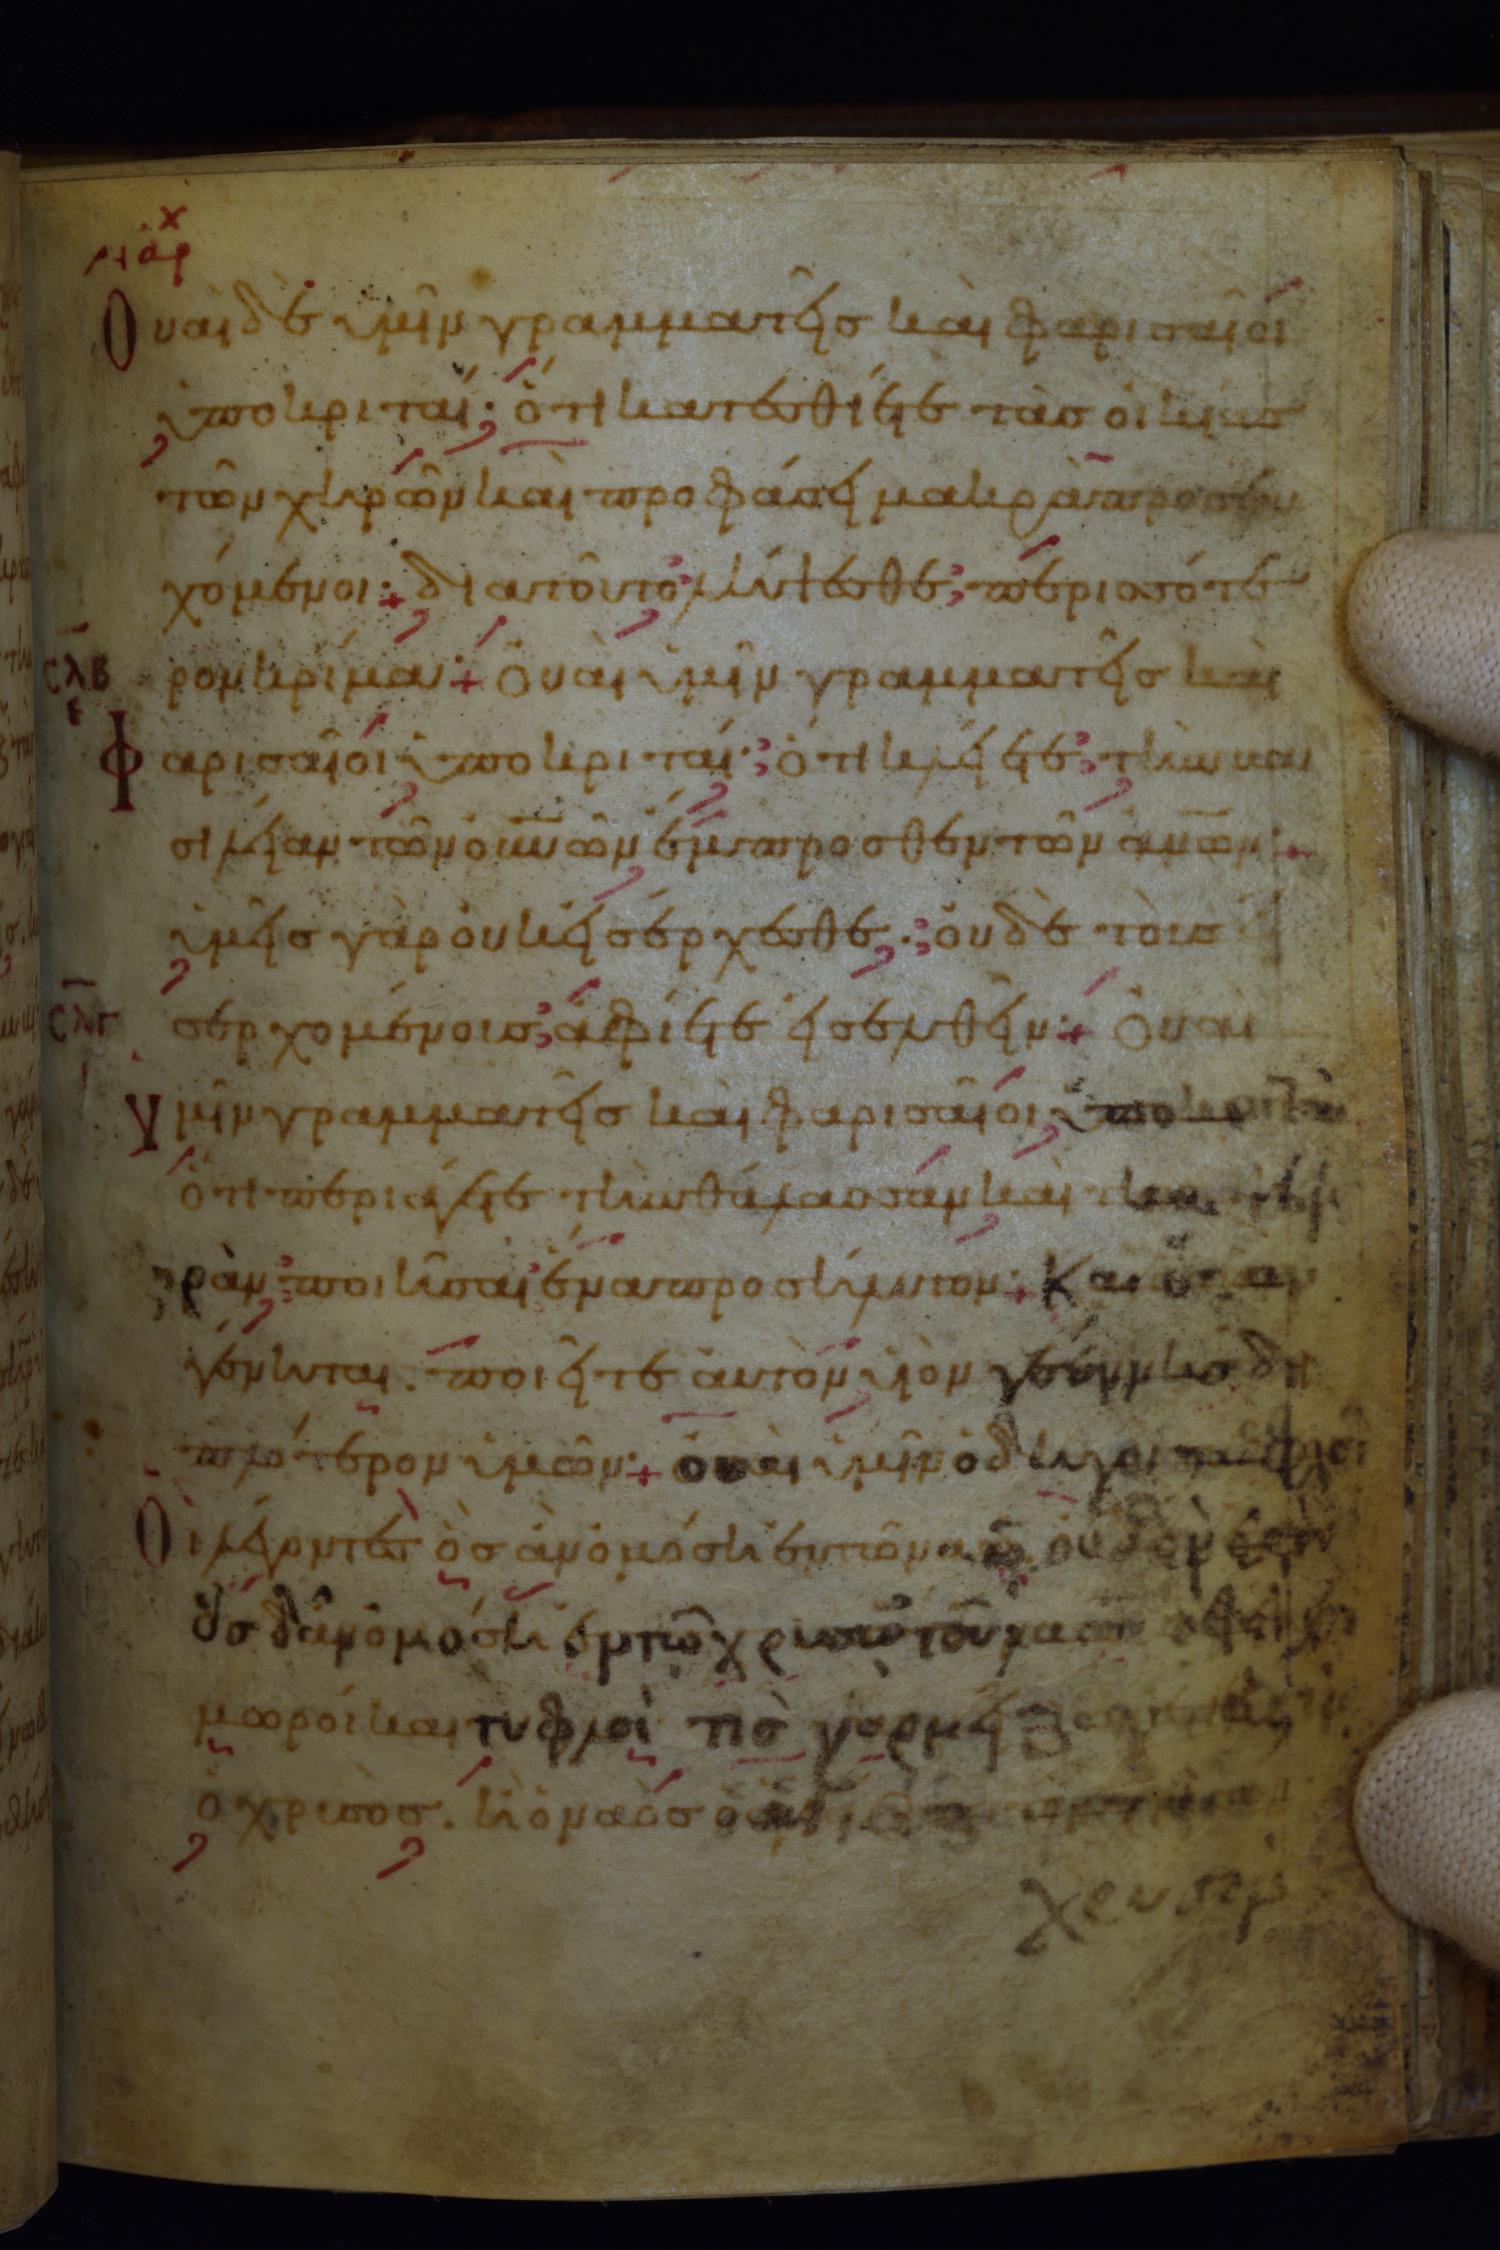 Οὐαὶ δὲ ὑμῖν γραμματεῖς καὶ φαρισαῖοι
ὑποκριταί· ὅτι κατεσθίετε τὰς οἰκίας
τῶν χηρῶν καὶ προφάσει μακρὰ προσευ
χόμενοι· διατοῦτο λήψεσθε περισσότε
ρον κρίμα· Οὐαὶ ὑμῖν γραμματεῖς καὶ
Φαρισαῖοι ὑποκριταί· ὅτι κλείετε τὴν βα
σιλείαν τῶν οὐνῶν ἔμπροσθεν τῶν ἀνῶν·
ὑμεῖς γὰρ οὐκ εἰσέρχεσθε· οὐδὲ τοὺς
σερχομένοις ἀφίετε εἰσελθεῖν· Οὐαὶ
Ὑμῖν γραμματεῖς καὶ φαρισαῖοι ὑποκριταὶ
ὅτι περιάγετε τὴν θάλασσαν καὶ τὴν
ρὰν ποιῆσαι ἕνα προσήλυτον· καὶ ὅταν
γένηται. ποιεῖτε αὐτὸν υἱὸν γεέννης δι
πλότερον ὑμῶν· οὐαὶ ὑμῖν ὁδηγοὶ τυφλοὶ
Οἱ λέγοντες ὃς ἂν ὀμόσει ἐν τῷ ναῷ οὐδέν ἐστιν
ὃς δ' ἂν ὀμόσει ἐν τῷ χρυσῷ τοῦ ναοῦ ὀφείλει
μωροί καὶ τυφλοὶ τίς γὰρ μείζων
ὁ χρυσὸς. ἢ ὁ ναὸς ὁ
χρυσόν
μιάρχ
σλβ
ε
σλγ